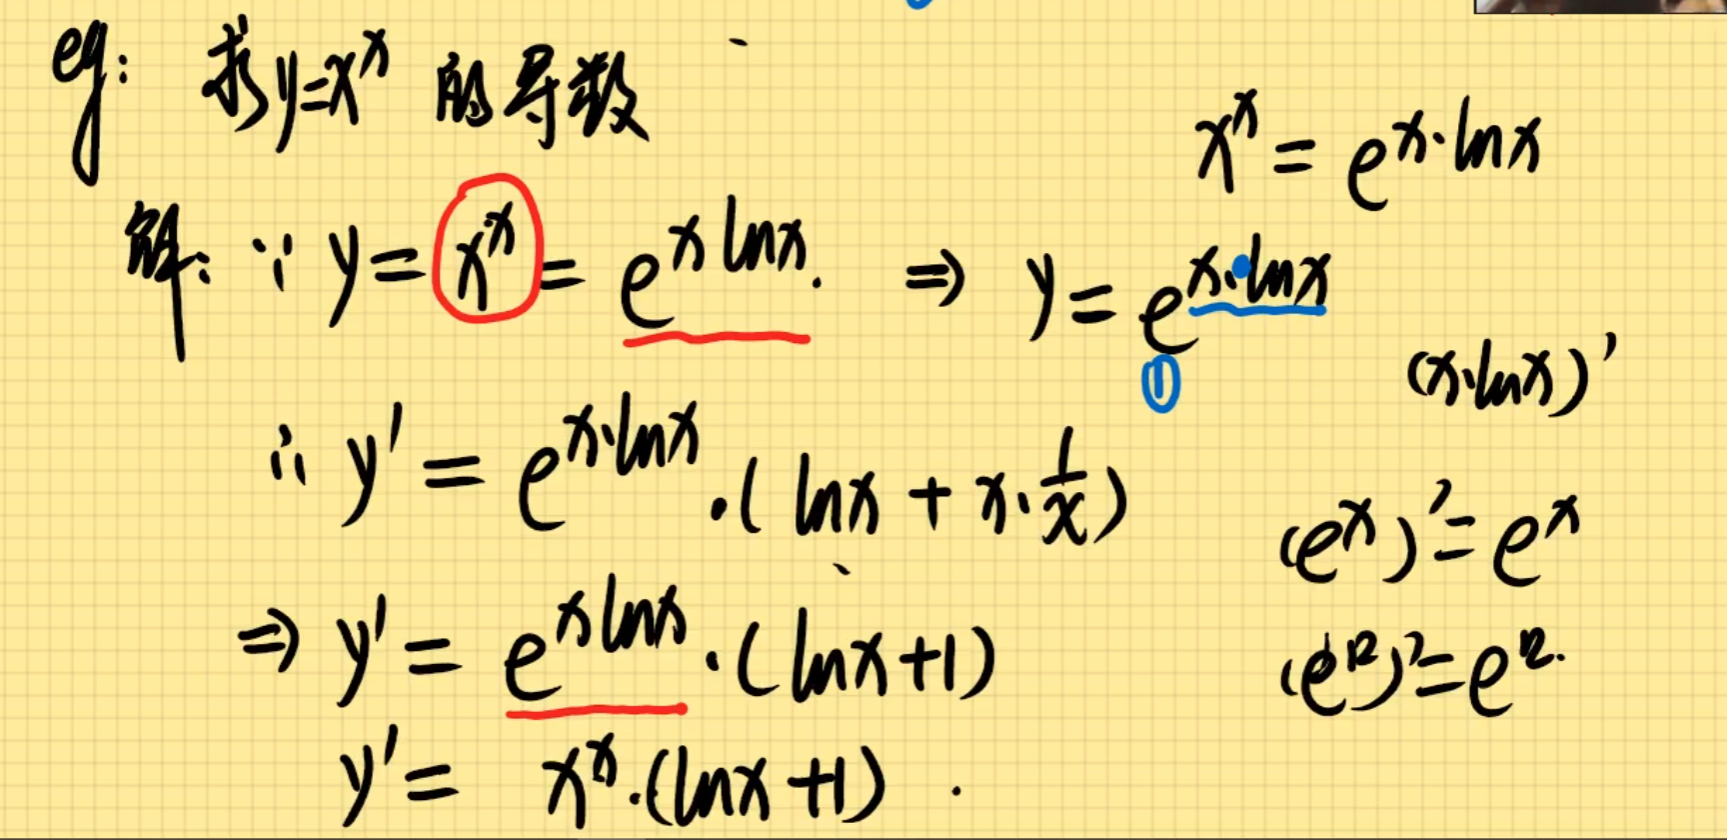 eg: 求y=x^x 的导数
x^x = e^{x·lnx}
解: ∵ y = x^x = e^{x lnx}. ⇒ y = e^{x·lnx}
①
(x·lnx)'
∴ y' = e^{x·lnx} ·( lnx + x·1/x )
(e^x)' = e^x
⇒ y' = e^{x lnx} ·( lnx+1)
y' = x^x·(lnx+1) .